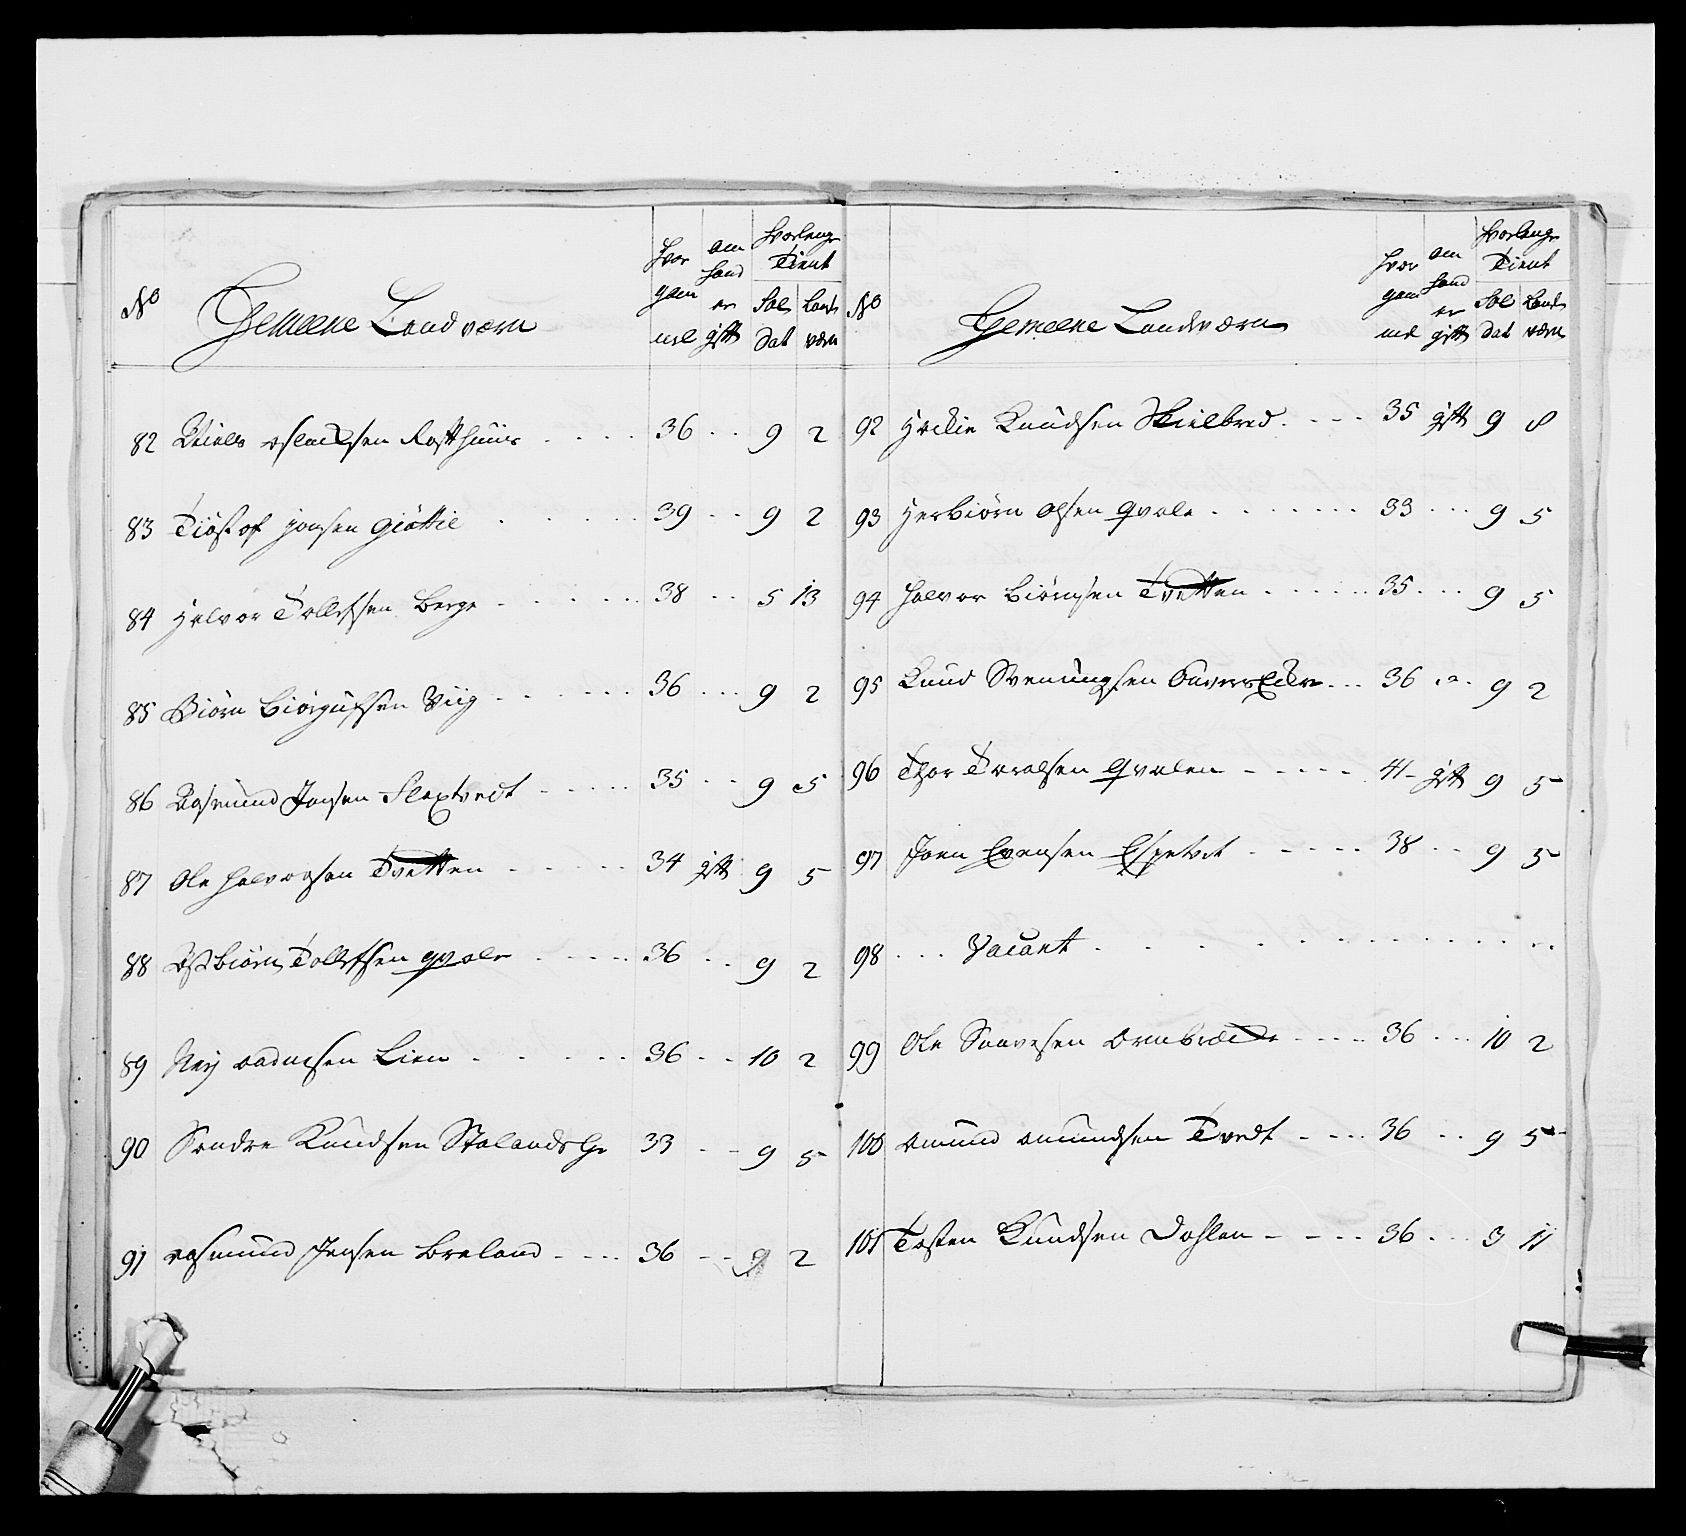 No Gemeene Landværn Hvor gam mel om hand er gift Hvorlenge Tient Sol dat Land værn
82 Niels Aslacksen Rosthuus 36 9 2
83 Tiøstof Jonsen Giøttil 39 9 2
84 Halvor Tollefsen Berge 38 5 13
85 Biørn Biørgufsen Viig 36 9 2
86 Aasmund Jonsen Slextvedt 35 9 5
87 Ole Halvorsen Tvetten 34 gift 9 5
88 Astbiørn Tollefsen Qvale 36 9 2
89 Neri Aadnesen Lien 36 10 2
90 Sondre Knudsen Stalands 33 9 5
91 Aasmund Jensen Breland 36 9 2
No Gemeene Landværn Hvor gam mel om hand er gift Hvorlenge Tient Sol dat Land værn
92 Knudsen Skielbred 35 gift 9 8
93 Herbiørn Olsen Qvale 33 9 5
94 Halvor Biørnsen Tvetten 35 9 5
95 Knud Sveningsen 36 9 2
96 Thor Torolsen Qvalen 41 gift 9 5
97 Joen Evensen Espetvet 38 9 5
98 Vacant
99 Ole Saavesen Ornbrække 36 10 2
100 Amund Amundsen Tvedt 36 9 5
101 Tosten Knudsen Dahlen 36 3 11